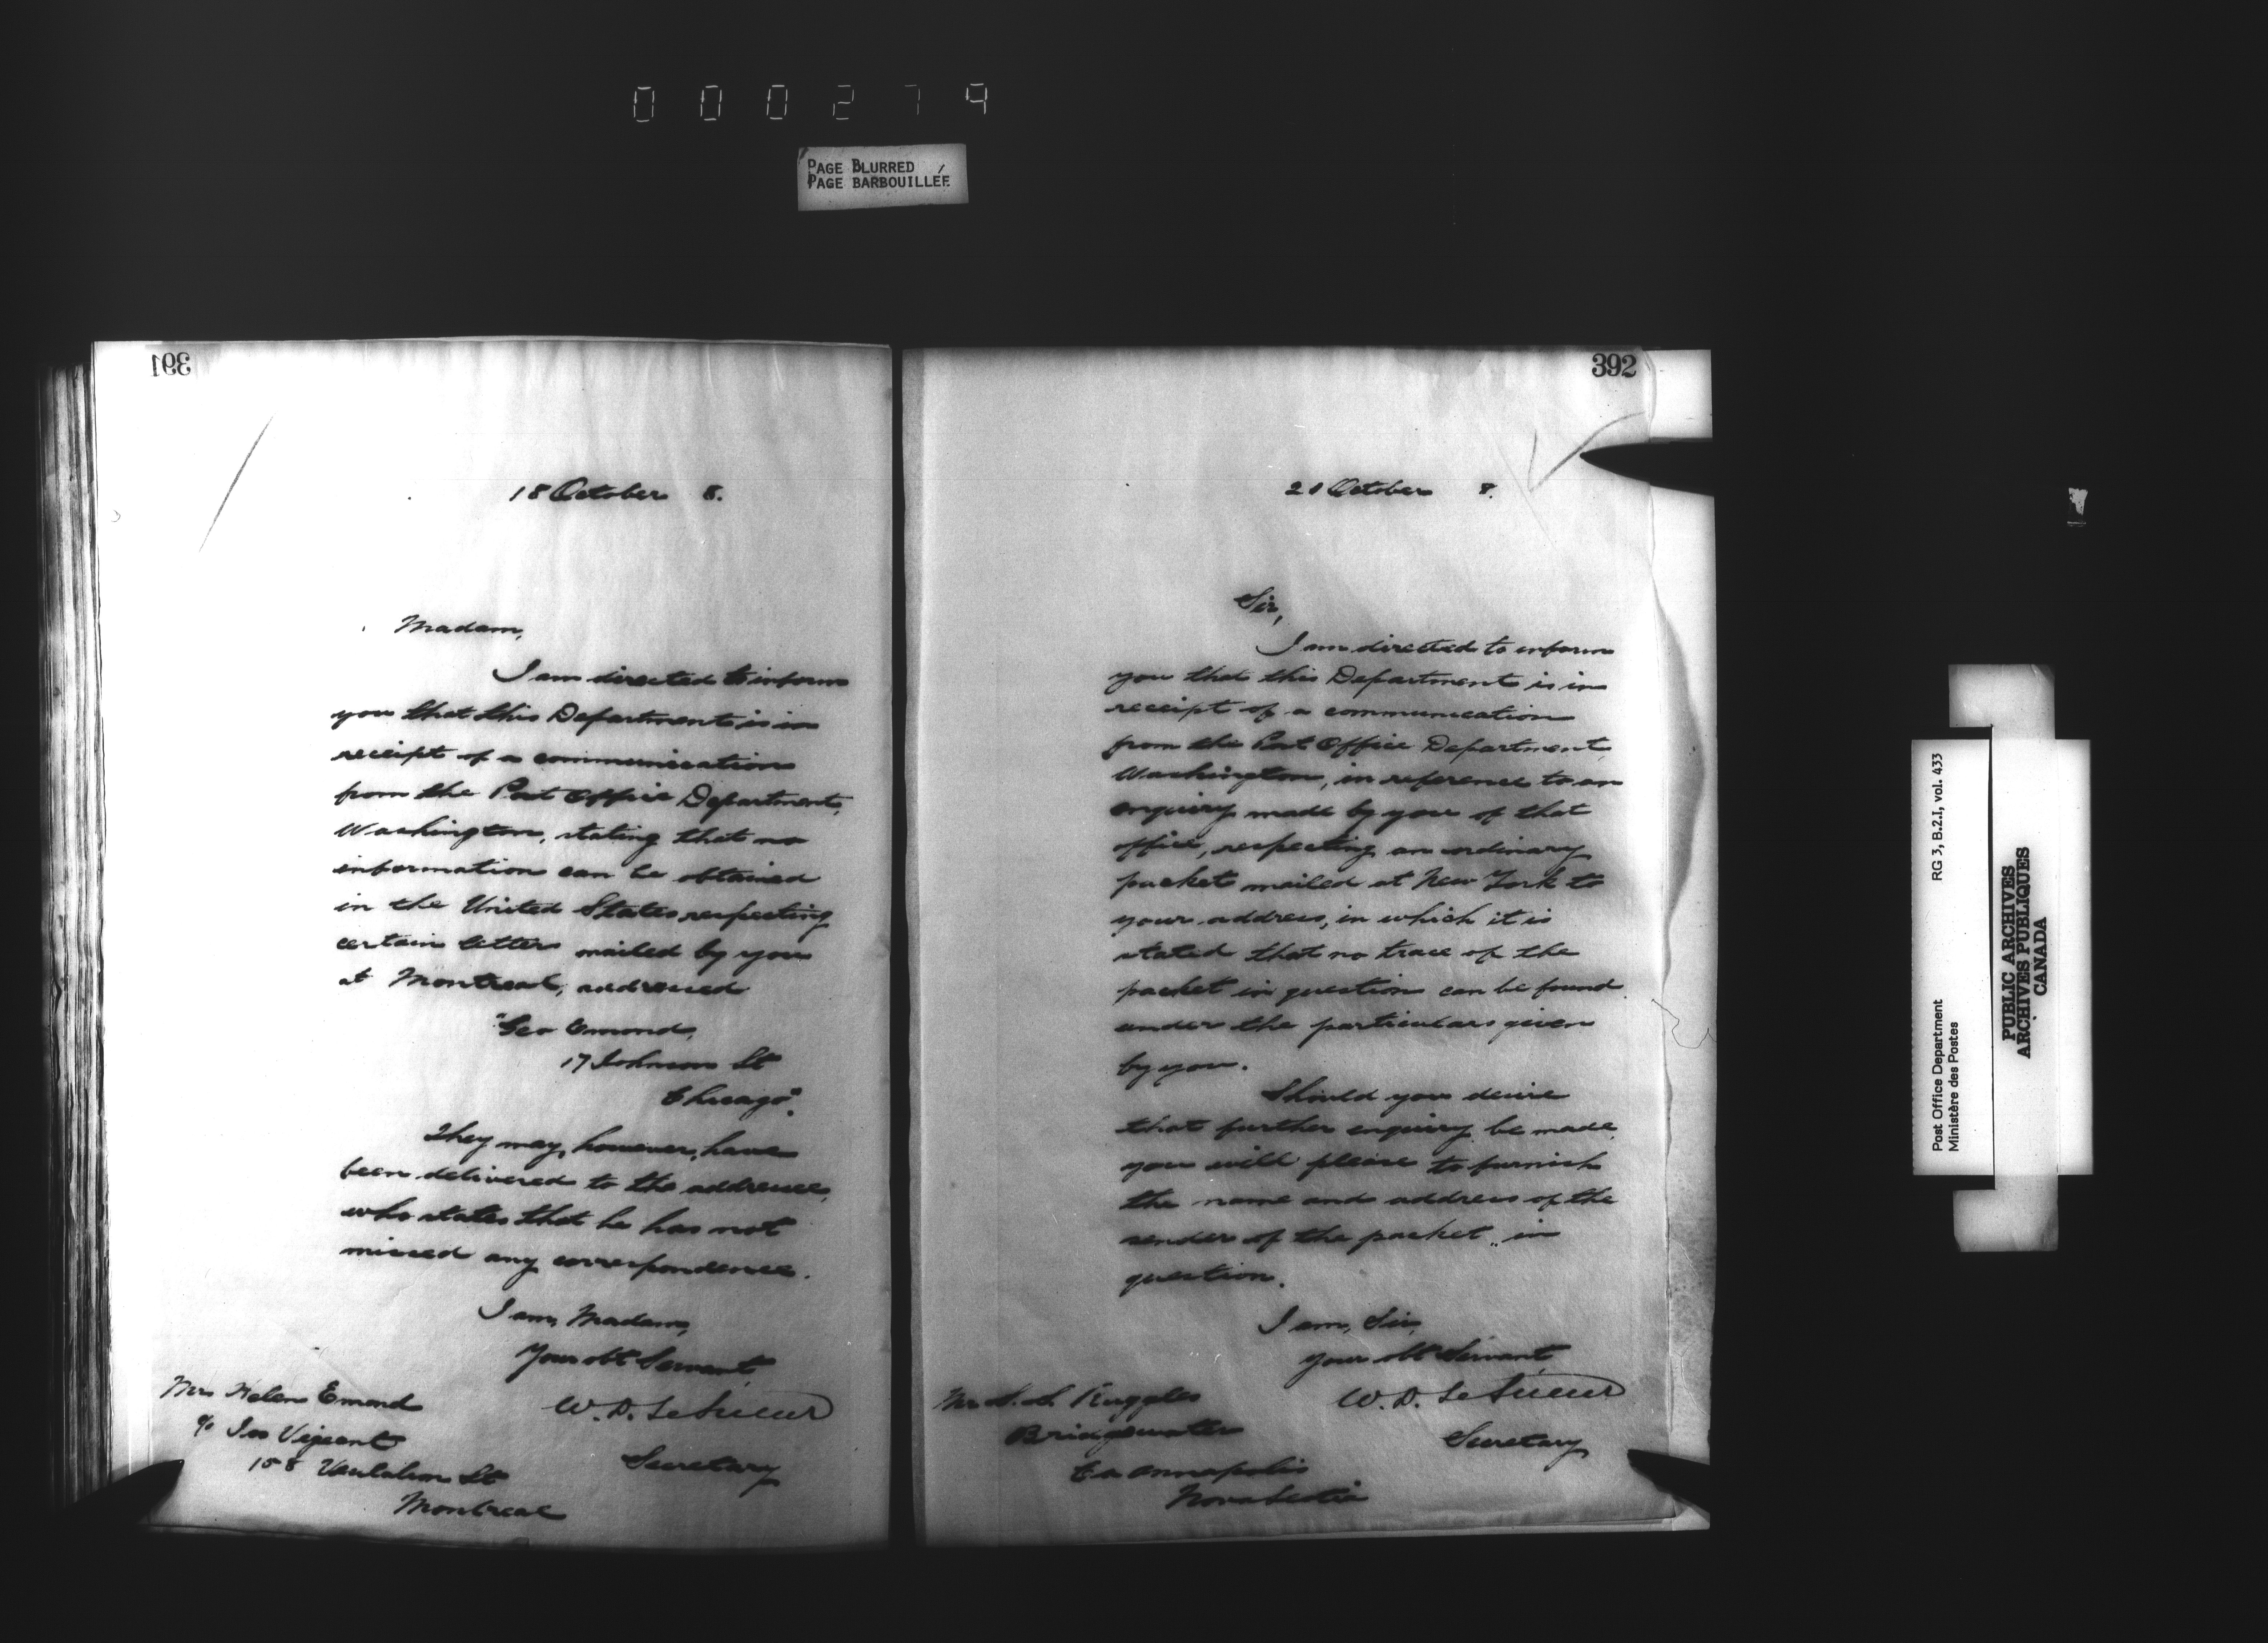 000279
PAGE BLURRED
PAGE BARBOUILLÉE
391
18 October 8.
Madam,
I am directed to inform
you that this Department is in
receipt of a communication
from the Post Office Department,
Washington, stating that no
information can be obtained
in the United States respecting
certain letters mailed by you
at Montreal, addressed
"Geo Emond,
17 Johnson St
Chicago".
They may, however, have
been delivered to the addressee,
who states that he has not
missed any correspondence.
I am, Madam,
Your obt Servant
W. D. LeSueur
Secretary
Mrs Helen Emond
c/o Jos Vigeant
158 St
Montreal
392
21 October 8.
Sir,
I am directed to inform
you that this Department is in
receipt of a communication
from the Post Office Department,
Washington, in reference to an
enquiry made by you of that
office, respecting an ordinary
packet mailed at New York to
your address, in which it is
stated that no trace of the
packet in question can be found
under the particulars given
by you.
Should you desire
that further enquiry be made,
you will please to furnish
the name and address of the
sender of the packet in
question.
I am, Sir,
Your obt Servant
W. D. LeSueur
Secretary
Mr Ruggles
Bridgewater
Co Annapolis
Nova Scotia
Post Office Department
Ministère des Postes
RG 3, B.2.I, vol. 433
PUBLIC ARCHIVES
ARCHIVES PUBLIQUES
CANADA